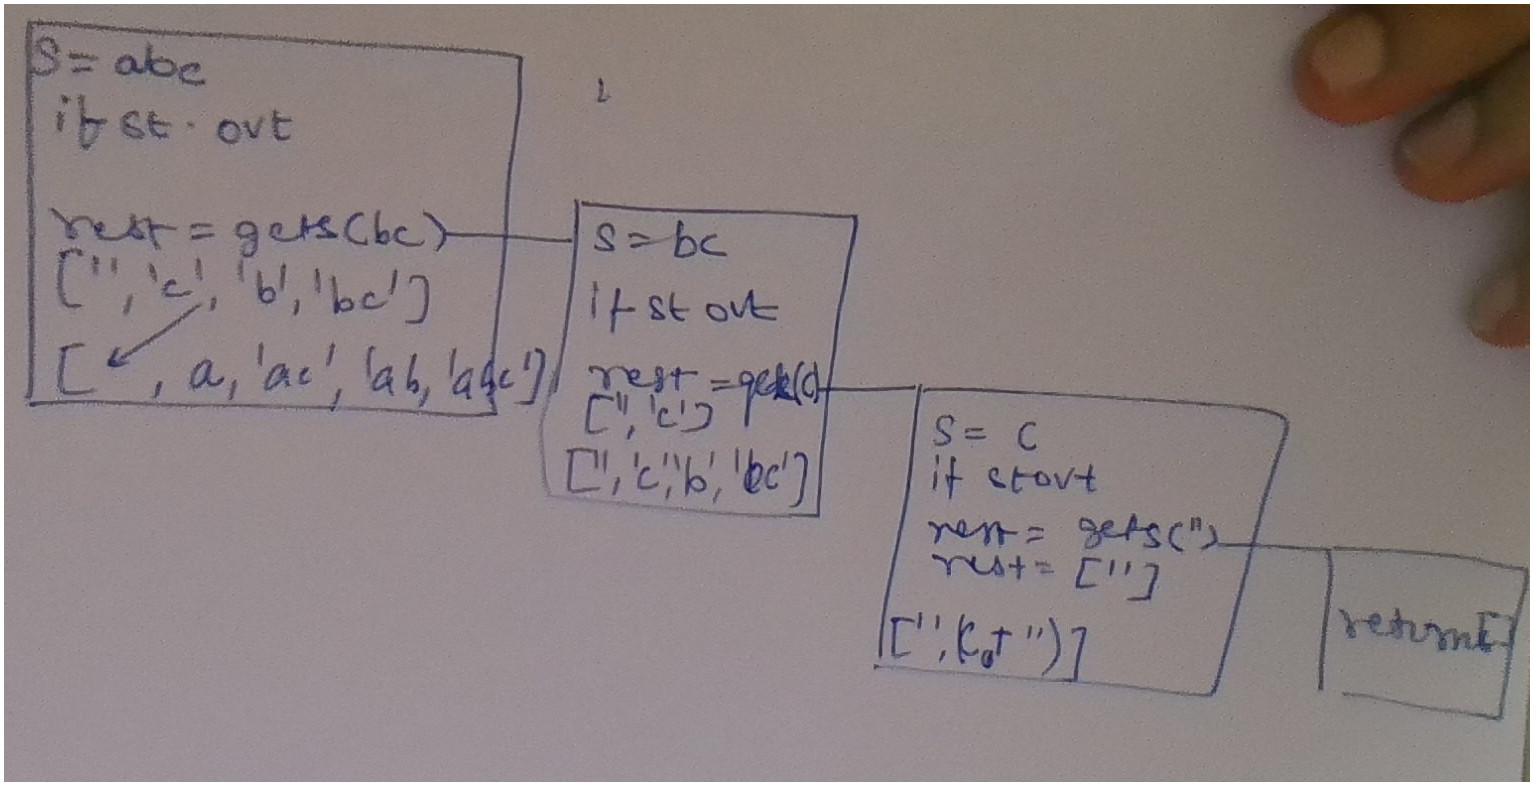 S = abc
if st. out
rest = gets(bc)
['', 'c', 'b', 'bc']
[ , a, 'ac', 'ab, 'abc']
S = bc
if st out
rest = gets(c)
['', 'c']
['', 'c', 'b', 'bc']
S = C
if st out
rest = gets('')
rest = ['']
return[]